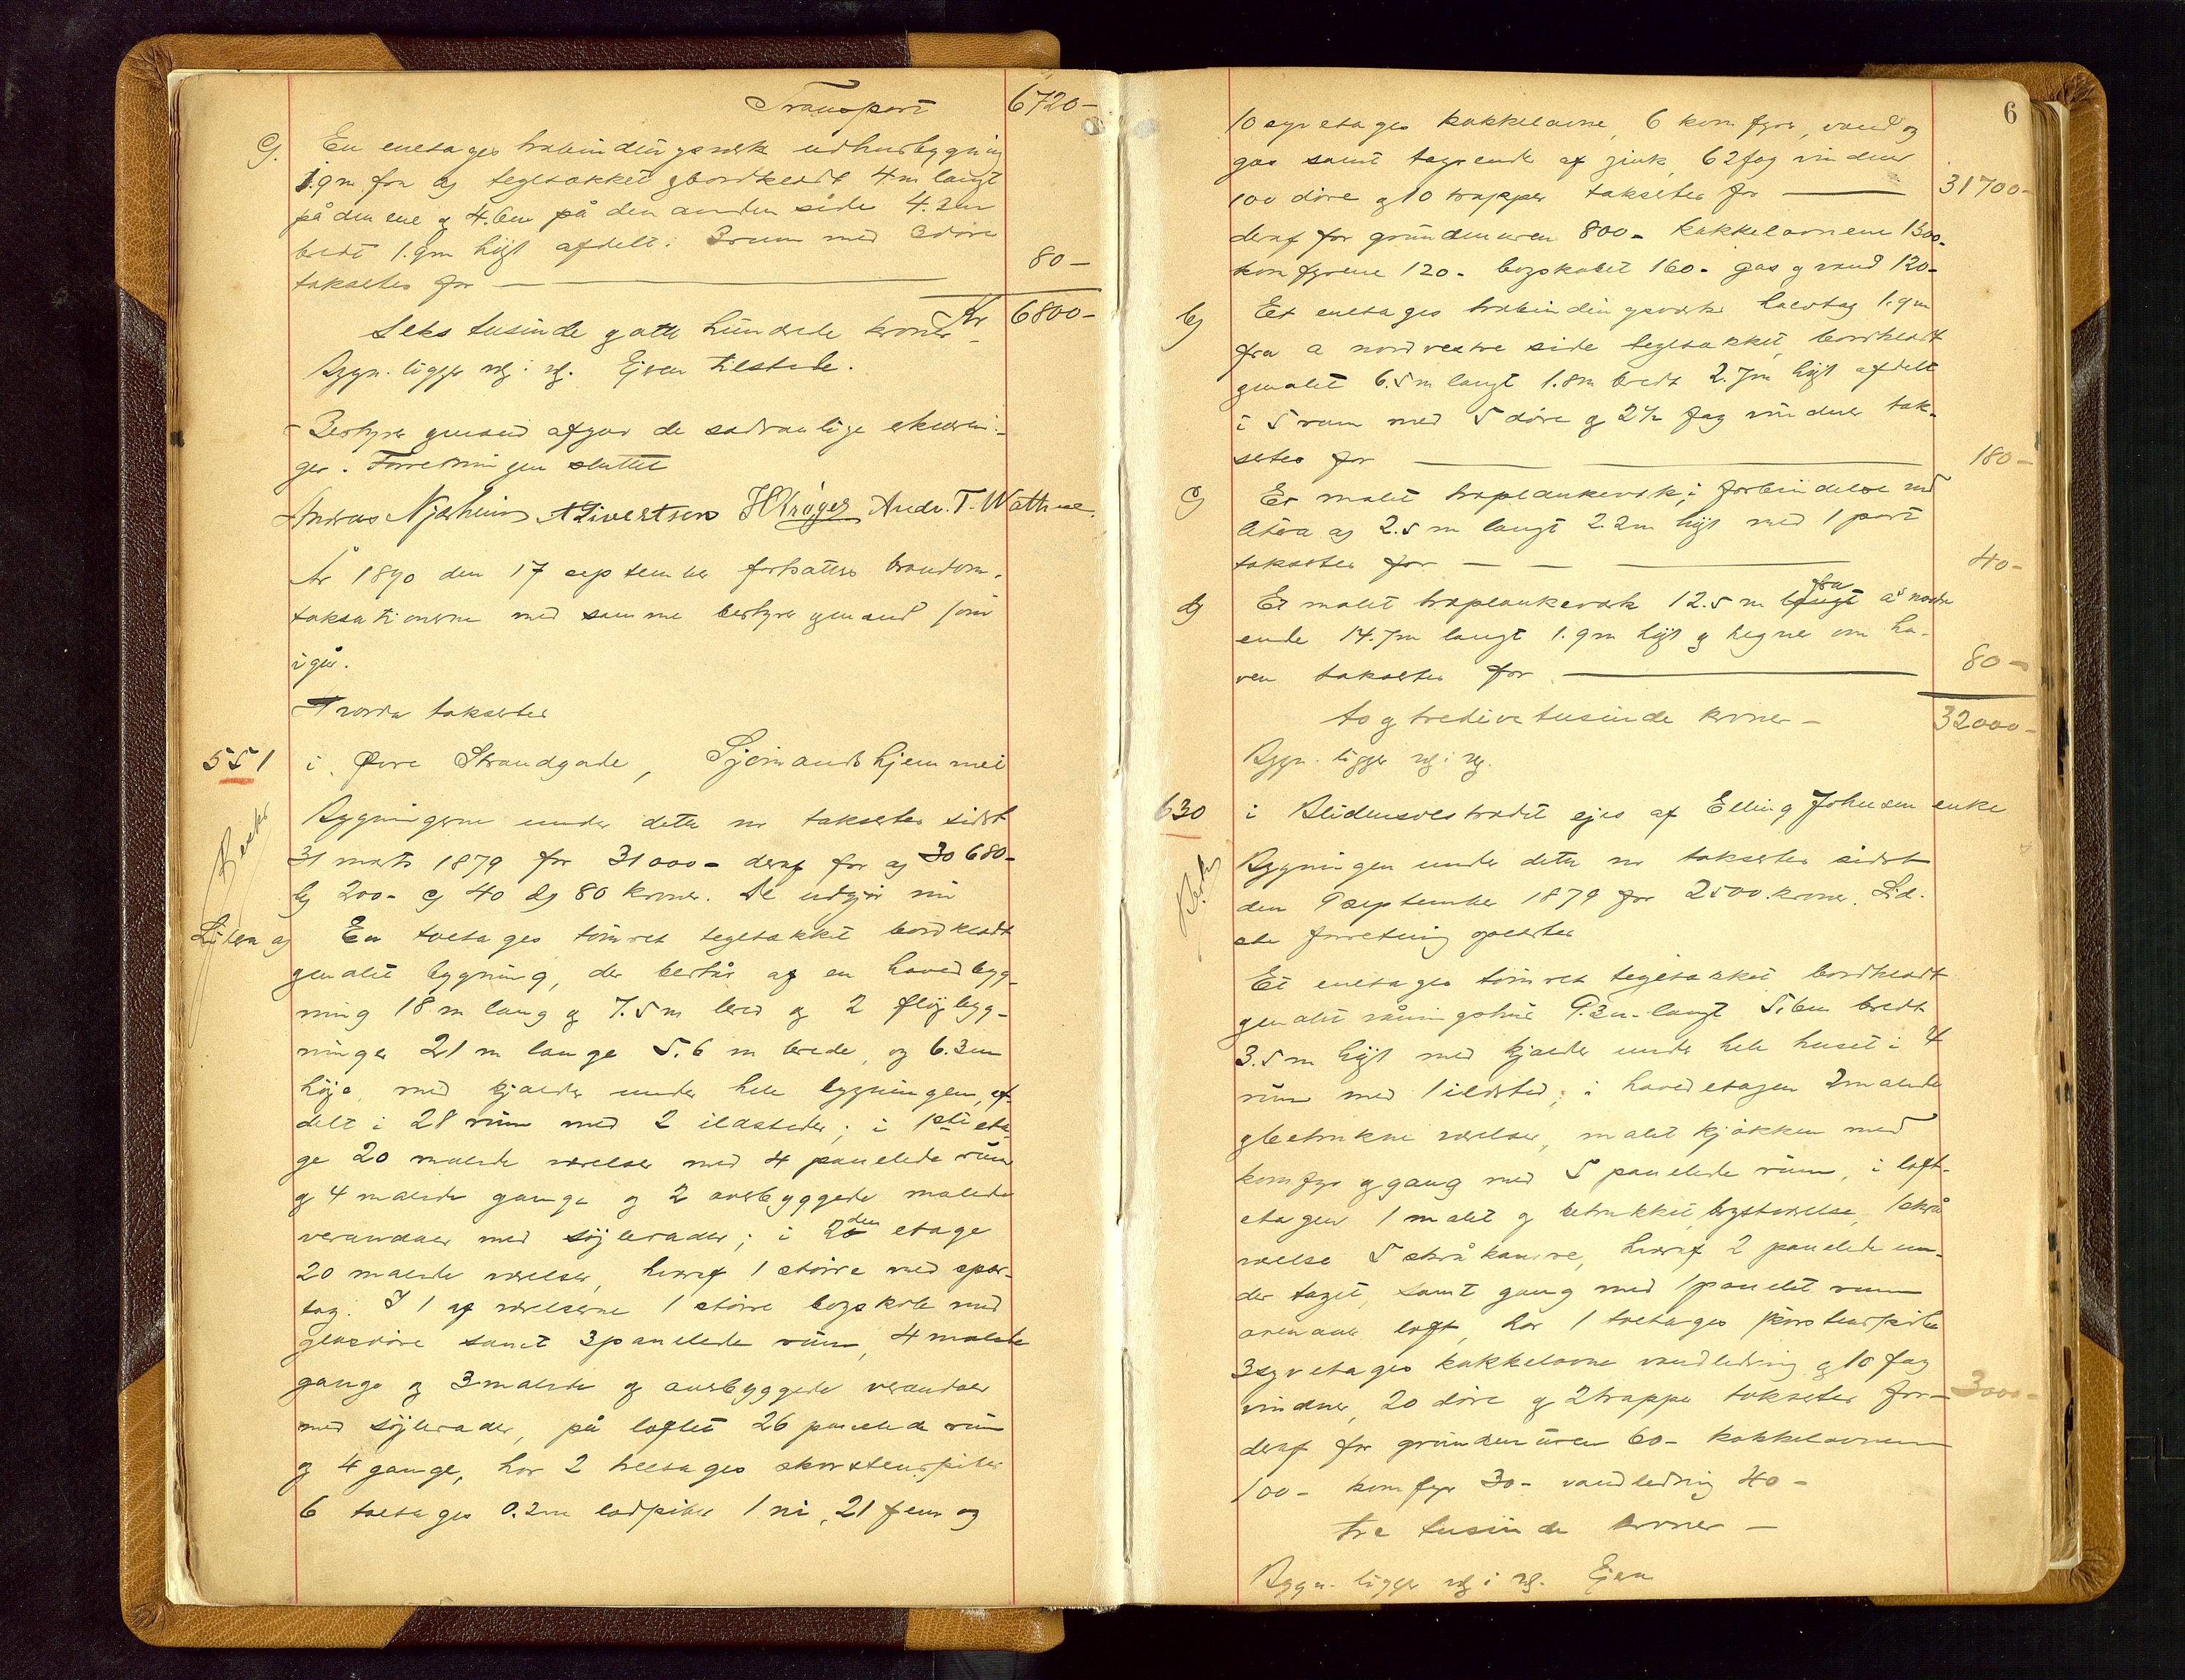 Transport 6720-
c) En enetages trabindingsværk udhusbygning
1.9 m fra a) teglsakket bordkledt 4 m langt
på den ene og 4.6 m på den anden side 4.2 m
bredt 1.9 m högt afdelt i 3 rum med 3 döre
takseres for 80-
Kr 6800-
Seks tusinde og otte hundrede kroner-
Bygn. ligger rg. i rg. Ejeren tilstede.
Bestyrer gmand afgav de sædvanlige erklærin-
ger. Forretningen sluttet
Andreas Njærheim A Sivertsen H Kröger Andr. T. Wathne.
År 1890 den 17 september fortsattes brandom-
taksationerne med samme bestyrer gmand som
igår.
Avorda taksertes
551 i Øvre Strandgade, Sjömandshjemmet
Bygningerne under dette nr takseres sidst
31 marts 1879 for 31000- deraf for a) 30680-
b) 200- c) 40 d) 80 kroner. De udgjör nu
a) En toetages tömret teglsakket bordkledt
gmalet bygning, der består af en hovedbyg-
ning 18 m lang og 7.5 m bred og 2 flöjbyg-
ninger 21 m lange 5.6 m brede, og 6.3 m
höje, med kjælder under hele bygningen, af-
delt i 28 rum med 2 ildsteder; i 1ste eta-
ge 20 malede værelser med 4 panelede rum
og 4 malede gange og 2 overbyggede malede
verandaer med söjlerader; i 2den etage
20 malede værelser, hvoraf 1 större med sper-
tag. I 1 af værelserne 1 större bogskab med
glasdöre samt 3 panelede rum, 4 malede
gange og 3 malede og overbyggede verandaer
med söjlerader, på loftet 26 panelede rum
og 4 gange, har 2 treetages skorstenspiber
6 toetages 0.2 m lodpiber 1 ni, 21 fem og
6
10 syvetages kakkelovne, 6 komfyre, vand og
gas samt tagrender af zink, 62 fag vinduer
100 döre og 10 trapper takseres for 31700-
deraf for grundmuren 800- kakkelovnene 1300-
komfyrene 120- bogskabet 160- gas og vand 120-
b) Et enetages trabindingsværks halvtag 1.9 m
fra a nordvestre side teglsakket, bordkledt
gmalet 6.5 m langt 1.8 m bredt 2.7 m högt afdelt
i 5 rum med 5 döre og 2½ fag vinduer tak-
seres for 180-
c) Et malet træplankeværk i forbindelse med
litra a) 2.5 m langt 2.2 m högt med 1 port
takseres for 40-
d) Et malet træplankeværk 12.5 m langt fra a's nordre
ende 14.7 m langt 1.9 m högt og hegner om ha-
ven takseres for 80-
32000-
to og tredive tusinde kroner-
Bygn. ligger rg. i rg.
630 i Blidensolstrædet ejes af Elling Johnsen enke
Bygningen under dette nr takseres sidst
den 9 september 1879 for 2500 kroner. Sid-
ste forretning oplæstes
Et enetages tömret teglsakket bordkledt
gmalet våningshus 9.3 m langt 5.6 m bredt
3.5 m högt med kjælder under hele huset i 4
rum med 1 ildsted; i hovedetagen 2 malede
og betrukne værelser, malet kjökken med
komfyr og gang med 5 panelede rum, i loft-
etagen 1 malet og betrukket kvistværelse, 1 skrå
værelse 5 skråkamre, hvoraf 2 panelede un-
der taget, samt gang med 1 panelet rum
ovenover loft, har 1 toetages skorstenspibe
3 syvetages kakkelovne vandledning og 10 fag
vinduer, 20 döre og 2 trapper takseres for- 3000-
deraf for grundmuren 60- kakkelovnene
100- komfyr 30- vandledning 40-
tre tusinde kroner-
Bygn. ligger rg. i rg. Ejeren